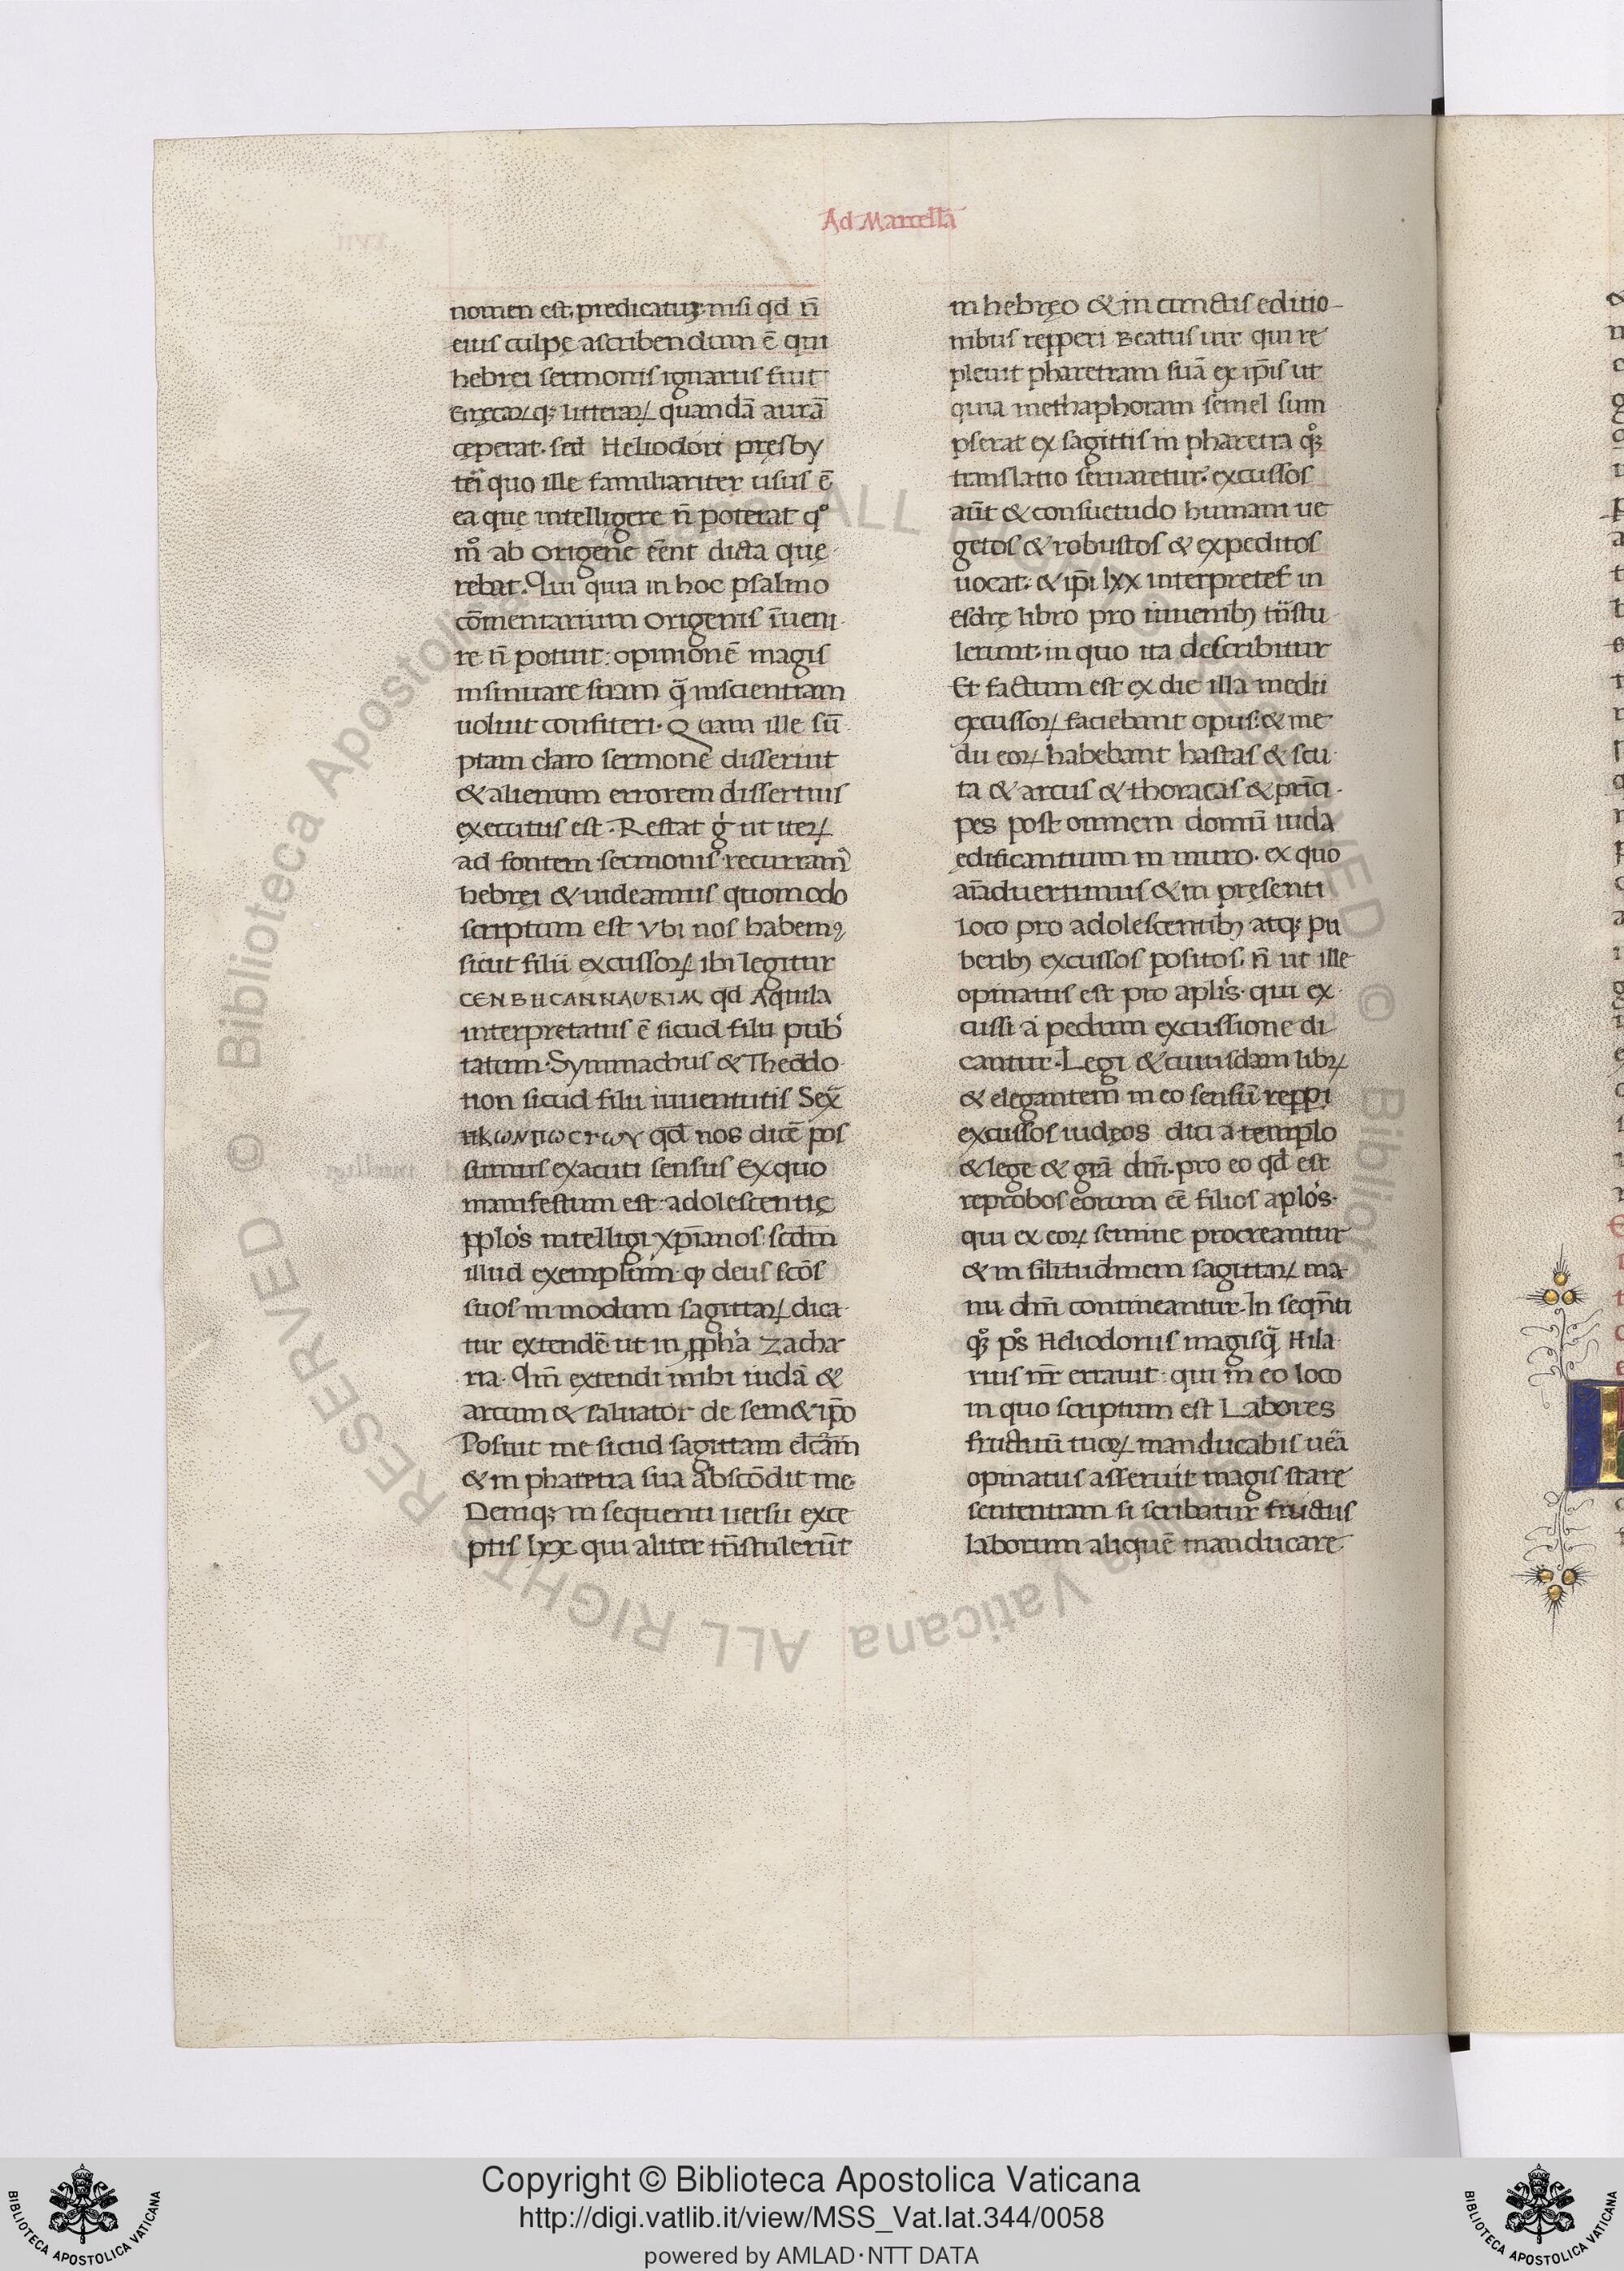 Ad Marcellā
nomen est. predicatur. nisi qd n̄
eius culpę ascribendum ē qui
hebrei sermonis ignarus fuit
Gręcaꝝ q; litteraꝝ quandā aurā
cęperat. sed Heliodori pręsby
teri quo ille familiariter usus ē
ea quę intelligere n̄ poterat qͦ
mͦ ab Origene eēnt dicta quę
rebat. Qui quia in hoc psalmo
cōmentarium Origenis īueni
re n̄ potuit: opinionē magis
insinuare suam q̄ inscientiam
uoluit confiteri. Quam ille sū
ptam claro sermone disseruit
& alienum errorem dissertius
executus est. Restat g̊ ut iteꝝ
ad fontem sermonis recurram
hebręi & uideamus quomodo
scriptum est Vbi nos habemꝰ
sicut filii excussoꝝ ibi legitur
CEN BHCANNAURIM, qd Aquila
interpretatus ē sicud filii pub
tatum. Symmachus & Theodo
tion sicud filii iuuentutis Sex̄
ηκωνπωϲτων qd nos dicē pos
sumus exacuti sensus Ex quo
manifestum est adolescentię
pplōs intelligi xp̄ianos: scdm
illud exemplum. ꝙ deus scōs
suos in modum sagittaꝝ dica
tur extendē. ut in ꝓpha Zacha
ria. Qm̄ extendi mihi iudā &
arcum & saluator de sem&ip̄o
Posuit me sicud sagittam elcam
& in pharetra sua abscōdit me
Deniq; in sequenti uersu exce
ptis lxx qui aliter trn̄stulerūt
in hebręo & in cunctis editio
nibus repperi Beatus uir qui re
pleuit pharetram suā ex ip̄is ut
quia methaphoram semel sum
pserat ex sagittis in pharetra qͦq;
translatio seruaretur. excussos
aūt & consuetudo humani ue
getos & robustos & expeditos
uocat. & ip̄i lxx interpretes in
esdrę libro pro iuuenibꝫ trn̄stu
lerunt. in quo ita describitur
Et factum est ex die illa medii
excussoꝝ faciebant opus: & me
dii eoꝝ habebant hastas & scu
ta & arcus & thoracas & prīci
pes post omnem domū iuda
ędificantium in muro. ex quo
aīaduertimus & in pręsenti
loco pro adolescentibꝫ atq; pu
beribꝫ excussos positos. n̄ ut ille
opinatus est pro aplis. qui ex
cussi a pedum excussione di
cantur. Legi & cuiusdam libꝝ
& elegantem in eo sensū reppi
excussos iudęos dici a templo
& lege & grā dn̄i. pro eo qd est
reprobos eorum eē filios aplos.
qui ex eoꝝ semine procreantur
& in silitudinem sagittaꝝ ma
nu dn̄i contineantur. In seqn̄ti
qͦq; ps Heliodorus magisq̄ Hila
rius nr̄ errauit: qui in eo loco
in quo scriptum est Labores
fructuū tuoꝝ manducabis uēa
opinatus asseruit magis stare
sententiam si scribatur fructus
laborum aliquē manducare
Copyright © Biblioteca Apostolica Vaticana
http://digi.vatlib.it/view/MSS_Vat.lat.344/0058
powered by AMLAD·NTT DATA
BIBLIOTECA APOSTOLICA VATICANA
BIBLIOTECA APOSTOLICA VATICANA